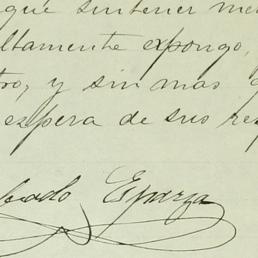 que sin tener me
ltamente expongo,
tro, y sin mas q
espera de sus res
Esparza